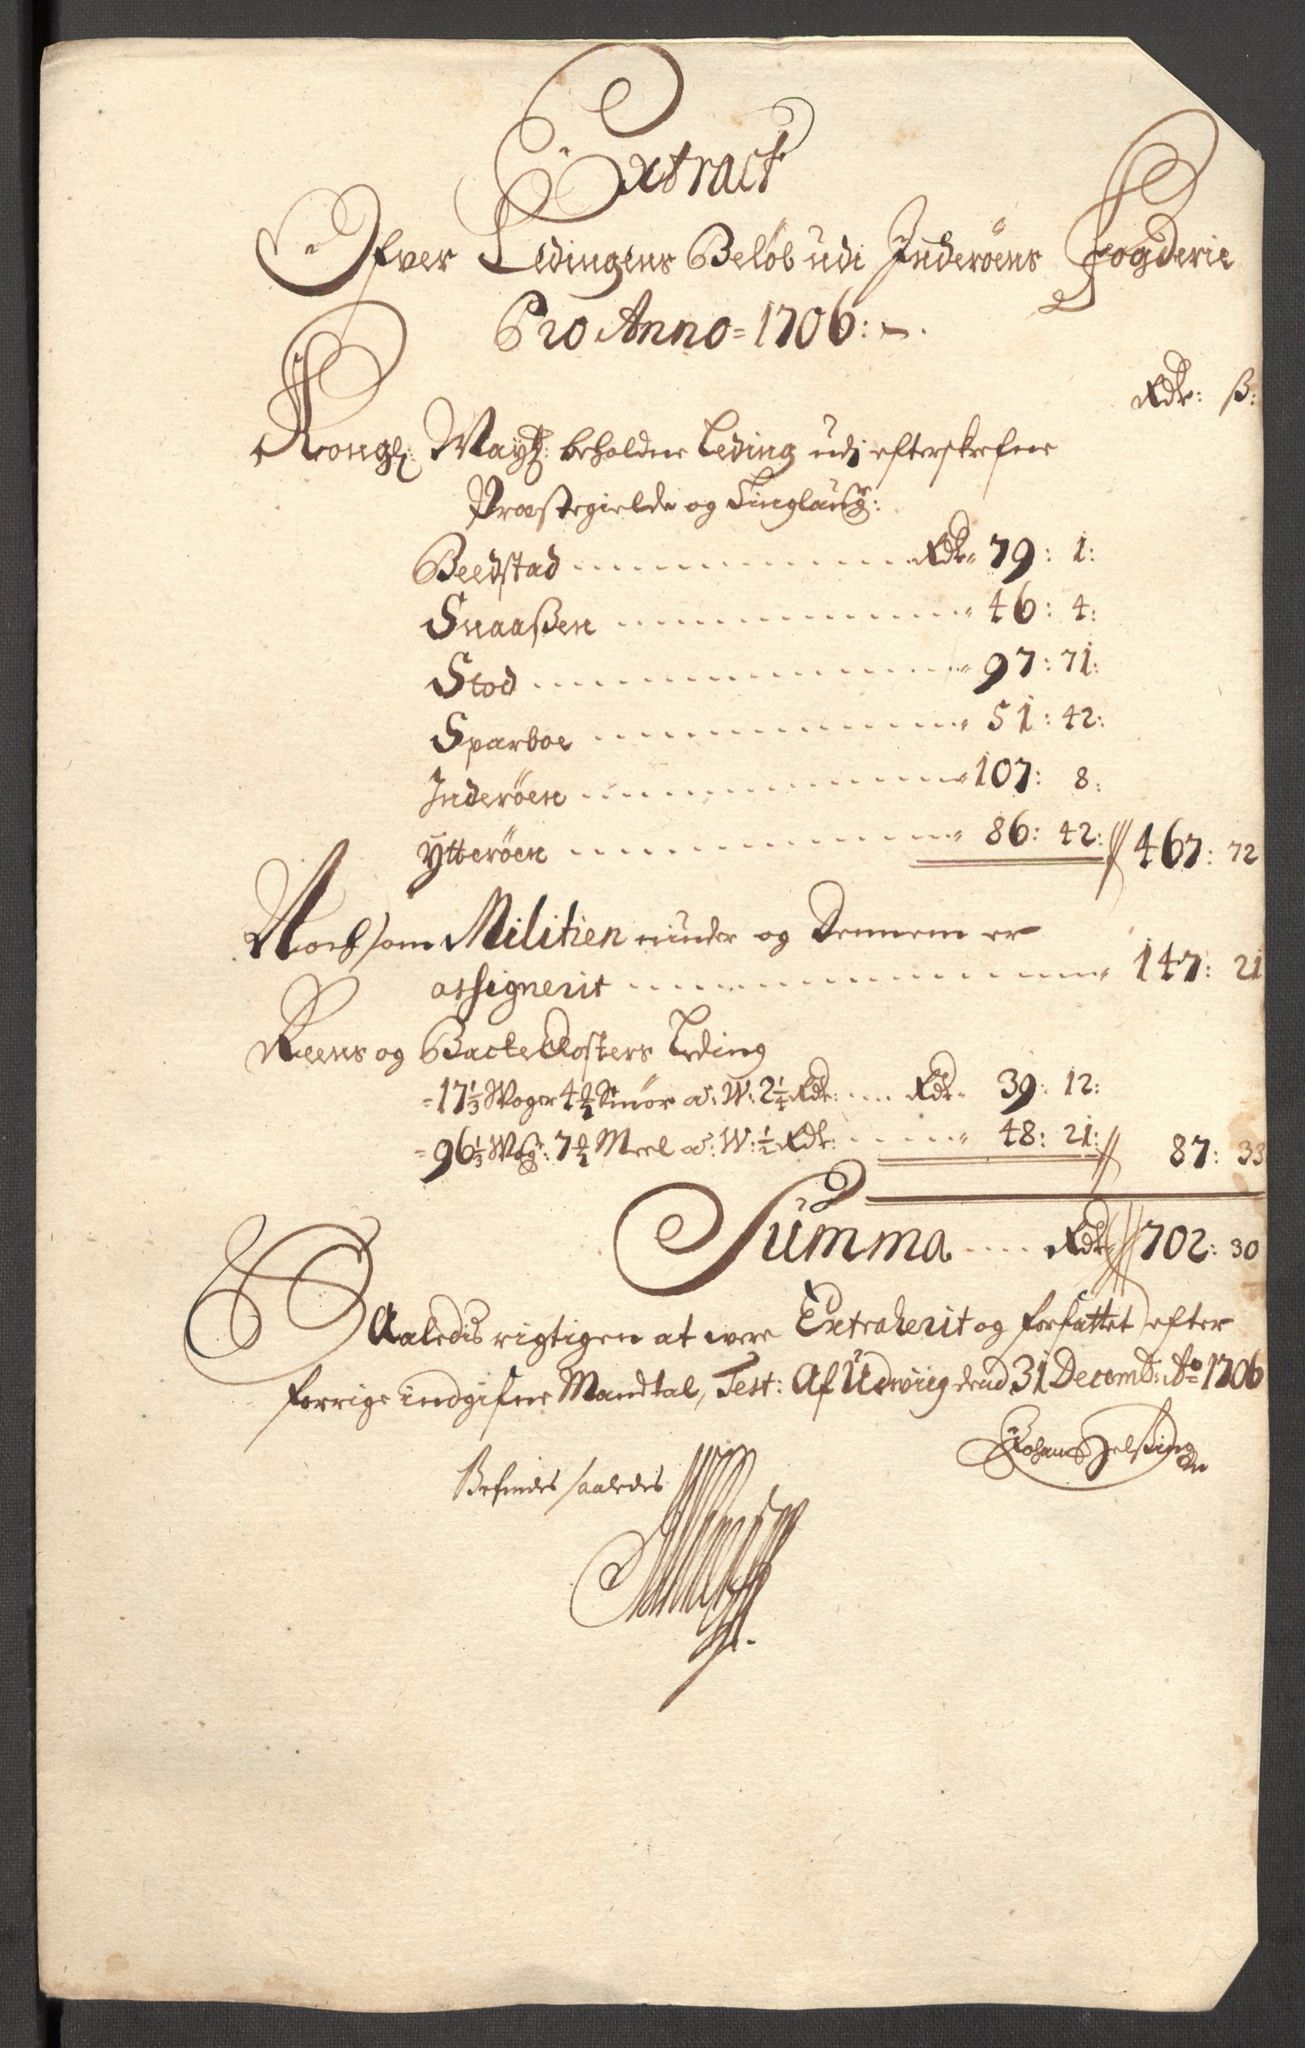 Extract
Ofver Ledingens Beløb udi Inderøens Fogderie
Pro Anno = 1706:
Rdr: ß:
Kongl: Mayts: beholdne Leding udj efterskrefne
Præstegielde og Tinglaug:
Beedstad Rdr 79: 1:
Snaaßen 46: 4:
Stod 97: 71:
Sparboe 51: 42:
Inderøen 107: 8:
Ytterøen 86: 42: 467: 72
Noch som Militien niuder og dennem er
assignerit 147: 21
Reens og Backe Closters Leding
= 17 1/3 Woger 4 1/2 Smør a: W: 2 1/4 Rdr: Rdr 39: 12:
= 96 1/3 Wog: 7 1/2 Meel a: W: 1/2 Rdr: 48: 21: 87: 33
Summa Rdr 702: 30
Saaledis rigtigen at were Extraherit og forfattet efter
forrige indgifne Mandtal, Test: Af Udwiig dend 31 Decemb: Ao 1706
Johan
Befindes saaledes